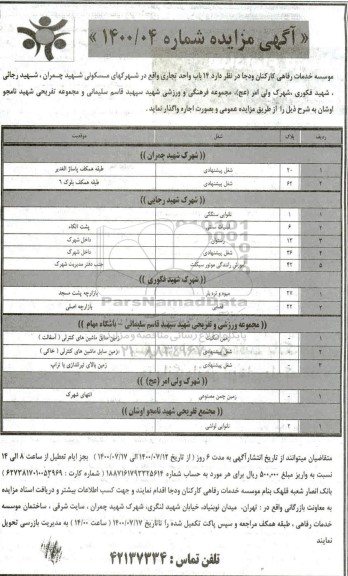 « آگهی مزایده شماره ۱۴۰۰/۰۴ »
موسسه خدمات رفاهی کارکنان ودجا در نظر دارد ۱۴ باب واحد تجاری واقع در شهرکهای مسکونی شهید چمران ، شهید رجائی
، شهید فکوری ،شهرک ولی امر (عج)، مجموعه فرهنگی و ورزشی شهید سپهبد قاسم سلیمانی و مجموعه تفریحی شهید نامجو
اوشان به شرح ذیل را از طریق مزایده عمومی و بصورت اجاره واگذار نماید .
ردیف پلاک شغل موقعیت
(( شهرک شهید چمران ))
۱ ۲۰ شغل پیشنهادی طبقه همکف، پاساژ الغدیر
۲ ۶۲ شغل پیشنهادی طبقه همکف بلوک ۶
(( شهرک شهید رجایی ))
۱ ۱ نانوایی سنگکی
۲ ۶ پشت
۳ ۱۳ داخل شهرک
۴ ۳۶ شغل پیشنهادی داخل شهرک
۵ ۴۲ رانندگی موتور سیکلت جنب دفتر مدیریت شهرک
(( شهرک شهید فکوری ))
۱ ۲۷ میوه و تره بار بازارچه پشت مسجد
۲ ۲۲ بازارچه اصلی
(( مجموعه ورزشی و تفریحی شهید سپهبد قاسم سلیمانی – باشگاه مهام ))
۱ - زمین سابق ماشین های کنترلی ( آسفالت )
۲ - شغل پیشنهادی زمین سابق ماشین های کنترلی ( خاکی )
۳ - شغل پیشنهادی زمین بالای تیراندازی با تراپ
(( شهرک ولی امر (عج) ))
۱ - زمین چمن مصنوعی انتهای شهرک
(( مجتمع تفریحی شهید نامجو اوشان ))
۱ ۲ نانوایی لواشی
متقاضیان میتوانند از تاریخ انتشارآگهی به مدت ۶ روز ( از تاریخ ۱۴۰۰/۰۷/۱۲ الی ۱۴۰۰/۰۷/۱۷ ) بجز ایام تعطیل از ساعت ۸ الی ۱۴
نسبت به واریز مبلغ ۵۰۰,۰۰۰ ریال برای هر مورد به حساب شماره
بانک انصار شعبه قلهک بنام موسسه خدمات رفاهی کارکنان ودجا اقدام نمایند و جهت کسب اطلاعات بیشتر و دریافت اسناد مزایده
به معاونت بازرگانی واقع در : تهران، میدان نوبنیاد، خیابان شهید لنگری، شهرک شهید چمران ، سایت شرقی ، ساختمان موسسه
خدمات رفاهی ، طبقه همکف مراجعه و سپس پاکت تکمیل شده را تاتاریخ ۱۴۰۰/۰۷/۱۷ ( ساعت ۱۴/۰۰ ) به مدیریت بازرسی تحویل
نمایند
تلفن تماس : ۴۲۱۳۷۳۳۴